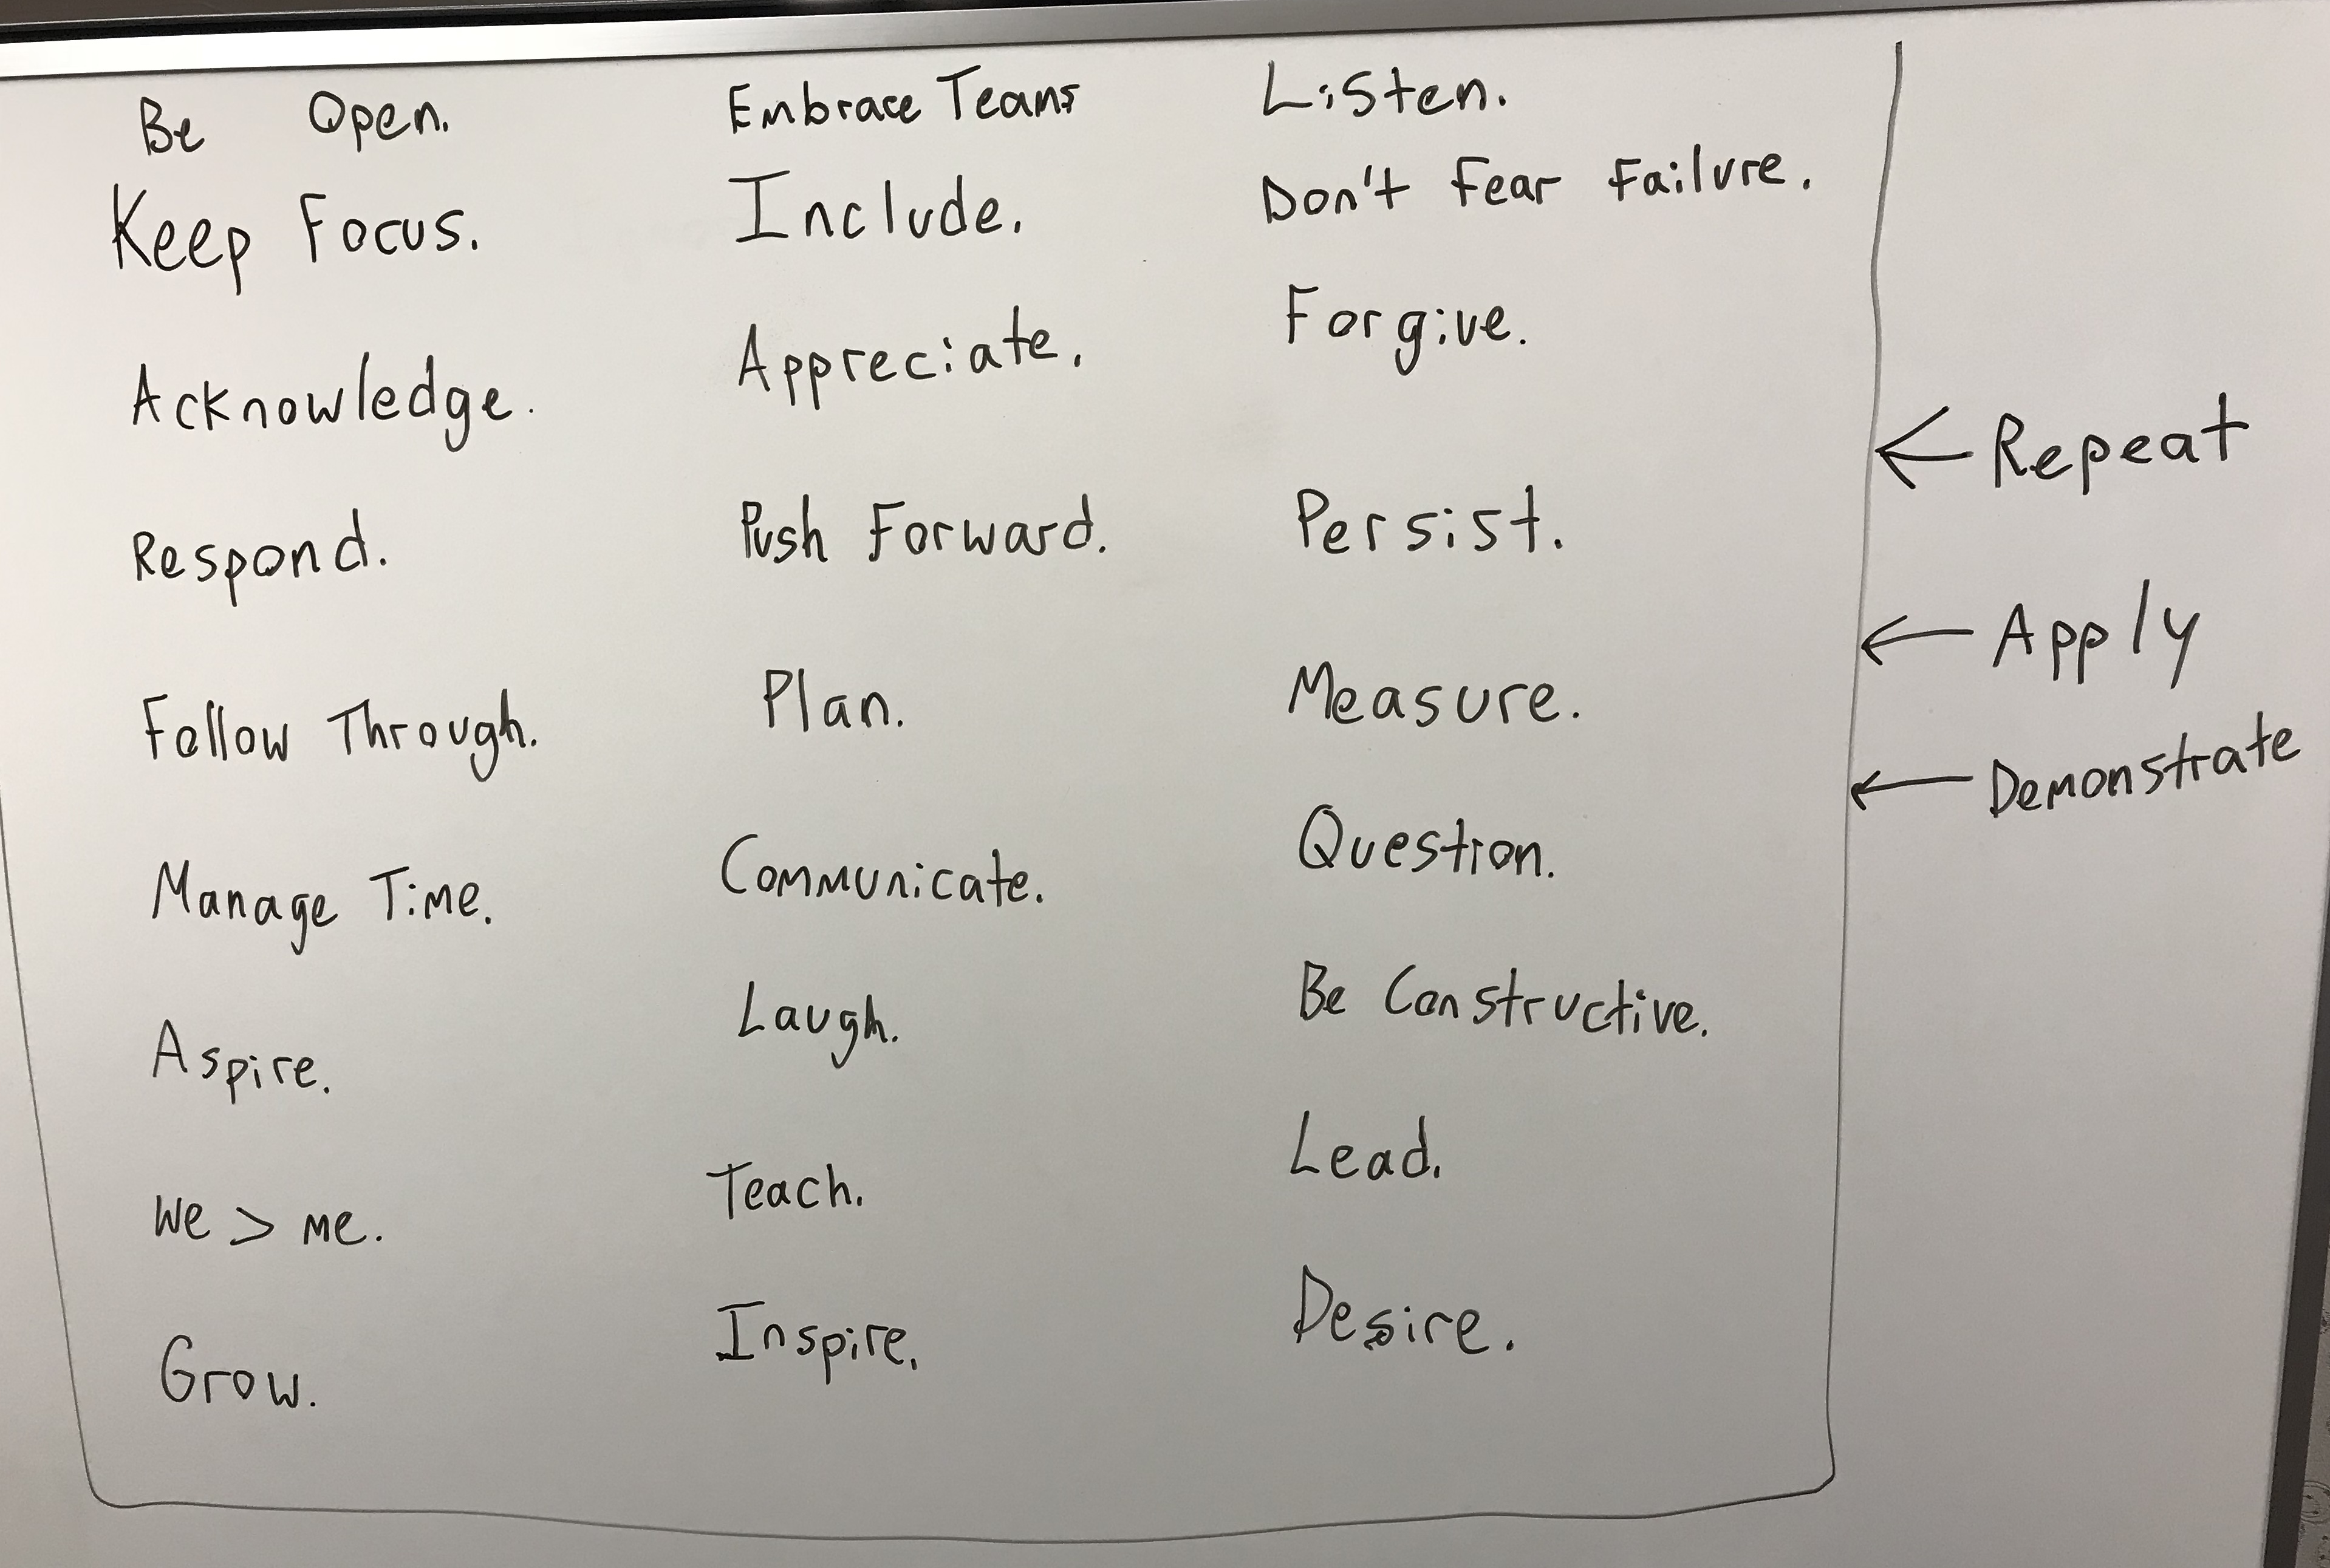 Be Open.
Keep Focus.
Acknowledge.
Respond.
Follow Through.
Manage Time.
Aspire.
We > me.
Grow.
Embrace Teams
Include.
Appreciate.
Push Forward.
Plan.
Communicate.
Laugh.
Teach.
Inspire.
Listen.
Don't Fear Failure.
Forgive.
Persist.
Measure.
Question.
Be Constructive.
Lead.
Desire.
← Repeat
← Apply
← Demonstrate